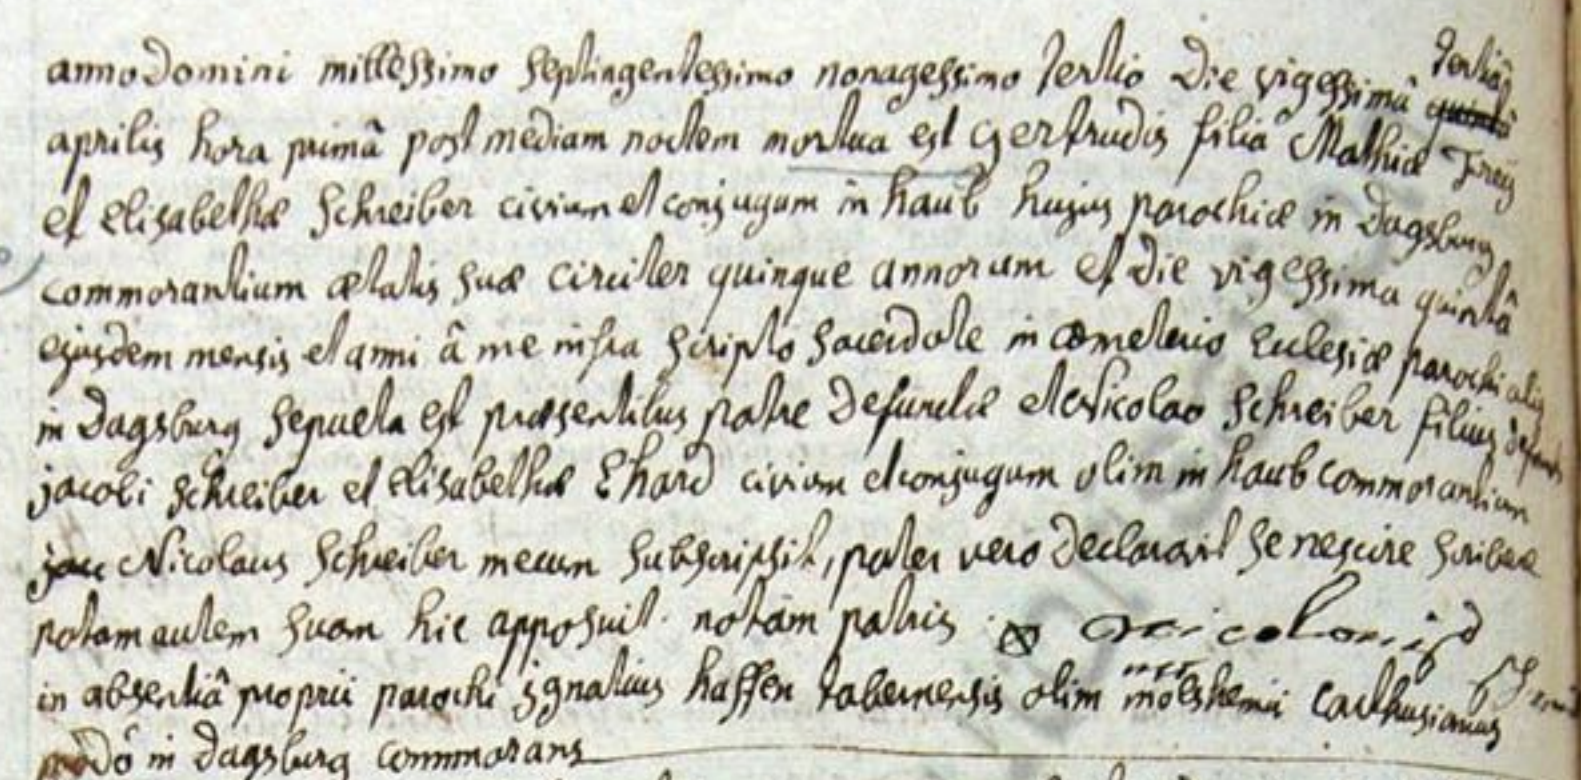 anno Domini millessimo septingentessimo nonagessimo tertio die vigessimâ tertiâ
aprilis hora primâ post mediam noctem mortua est Gertrudis filia Mathiæ Frey
et Elisabethæ Schreiber civium et conjugum in haub hujus parochiæ in Dagsburg
commorantium ætatis suæ circiter quinque annorum et die vigessima quintâ
ejusdem mensis et anni â me infra scripto sacerdote in cœmeterio Ecclesiæ parochialis
in Dagsburg sepulta est præsentibus patre defunctæ et Nicolao Schreiber filius defuncti
jacobi Schreiber et Elisabethæ Ehard civium et conjugum olim in haub commorantium
Nicolaus Schreiber mecum subscripsit, pater vero declaravit se nescire scribere
notam autem suam hic apposuit. notam patris
in absentiâ proprii parochi ignatius haffen tabernensis olim molshemii Carthusianus
modô in Dagsburg commorans